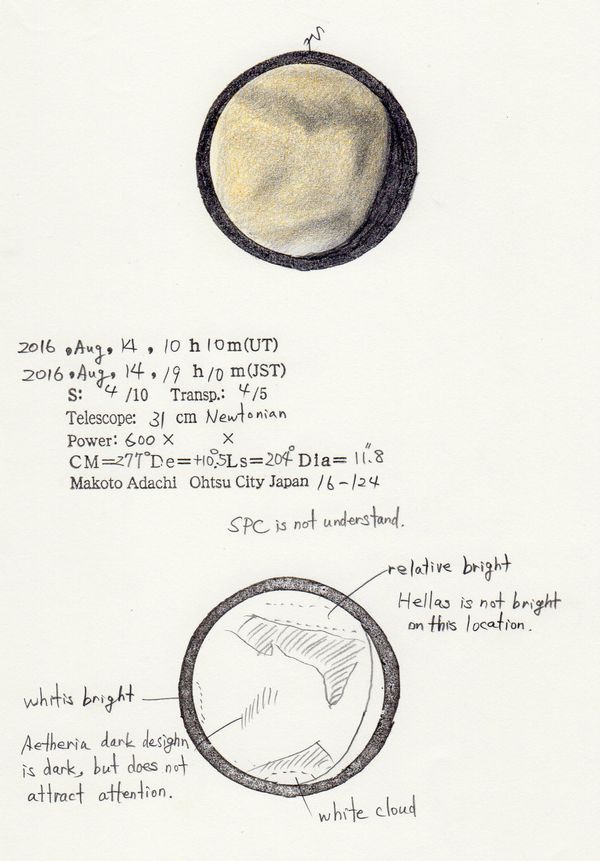 S
2016, Aug, 14, 10 h 10 m(UT)
2016, Aug, 14, 19 h 10 m(JST)
S: 4 /10 Transp.: 4/5
Telescope: 31 cm Newtonian
Power: 600 × ×
CM=277°De=+10.5°Ls=204° Dia= 11."8
Makoto Adachi Ohtsu City Japan 16-124
SPC is not understand.
relative bright
Hellas is not bright
on this location.
whitis bright
Aetheria dark desighn
is dark, but does not
attract attention.
white cloud